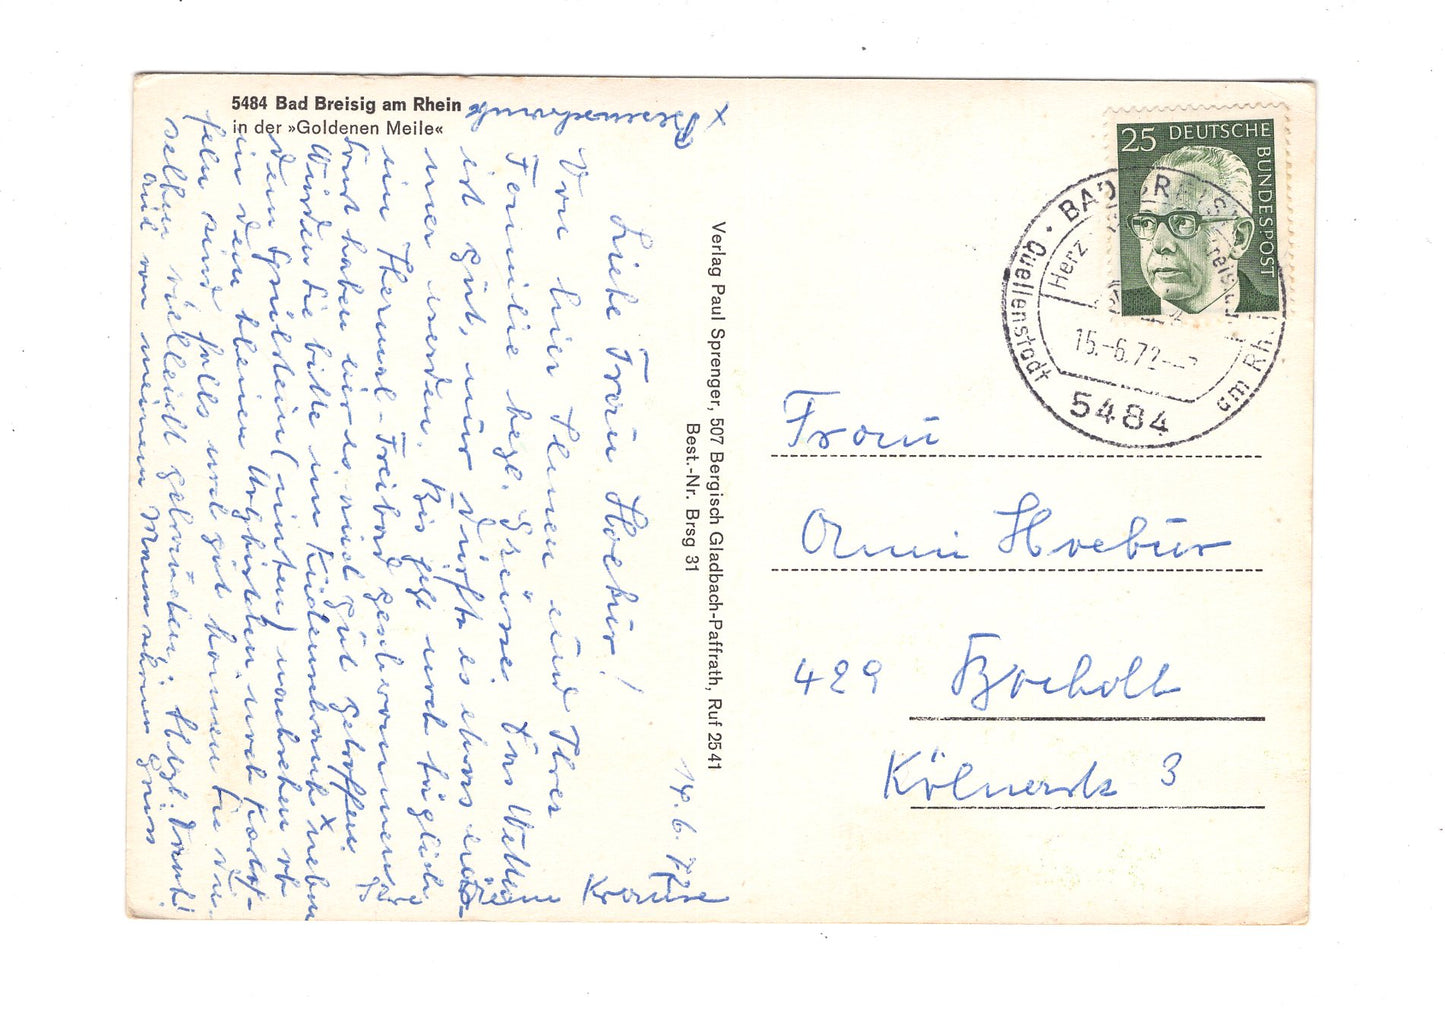 5484 Bad Breisig am Rhein
in der »Goldenen Meile«
14. 6. 72
Liebe Frau Hoebür!
Von hier Ihnen und Ihrer
Familie herzl. Grüsse. Das Wetter
ist gut, nur dürfte es etwas
wärmer werden. Bis jetzt noch täglich
im Thermal-Freibad geschwommen.
Sonst haben wir es auch gut getroffen.
Würden Sie bitte im Küchenschrank x neben
dem Spülstein (unten) nachsehen ob
in dem kleinen Körbchen noch Kartof-
feln sind falls noch gut können Sie die-
selben vielleicht gebrauchen. Herzl. Dank!
Auch von meinem Mann schönen Gruss
Ihre
Krause
Verlag Paul Sprenger, 507 Bergisch Gladbach-Paffrath, Ruf 2541
Best.-Nr. Brsg 31
25 DEUTSCHE BUNDESPOST
BAD BREISIG
Quellenstadt
Herz
15.-6.72
am Rh.
5484
Frau
Anni Hoebür
429 Bocholt
Kölnerstr. 3